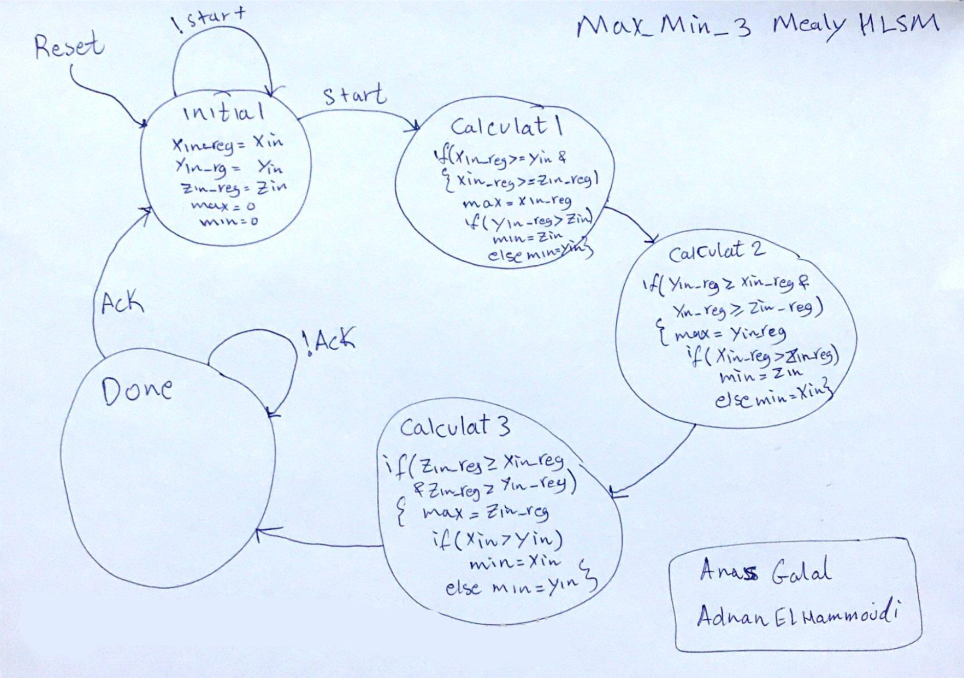 Max_Min_3 Mealy HLSM
!start
Reset
Initial
Xin_reg = Xin
Yin_rg = Yin
Zin_reg = Zin
max = 0
min = 0
start
Calculat 1
if(Xin_reg >= Yin &
{ Xin_reg >= Zin_reg)
max = Xin_reg
if(Yin_reg > Zin)
min = Zin
else min = Yin}
Calculat 2
if(Yin_rg ≥ Xin_reg &
Yin_reg ≥ Zin_reg)
{ max = Yinreg
if(Xin_reg > Zinreg)
min = Zin
else min = Xin}
Calculat 3
if(Zin_reg ≥ Xin_reg
& Zin_reg ≥ Yin_reg)
{ max = Zin_reg
if(Xin > Yin)
min = Xin
else min = Yin}
Done
!Ack
Ack
Anass Galal
Adnan El Hammoudi